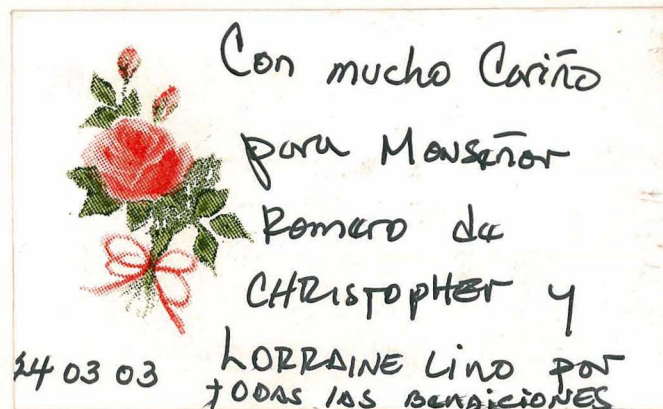 Con mucho Cariño
para Monseñor
Romero de
CHRISTOPHER y
LORRAINE Lino por
TODAS LAS BENDICIONES
24 03 03